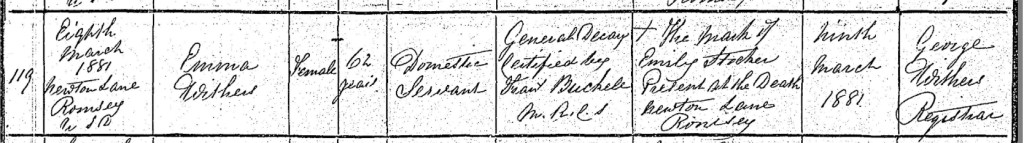 119
Eighth
March
1881
Newton Lane
Romsey
U S D
Emma
Withers
Female
62
years
Domestic
Servant
General Decay
Certified by
Frans Buckell
M.R.C.S
X The mark of
Emily Stocker
Present at the Death
Newton Lane
Romsey
Ninth
March
1881
George
Withers
Registrar